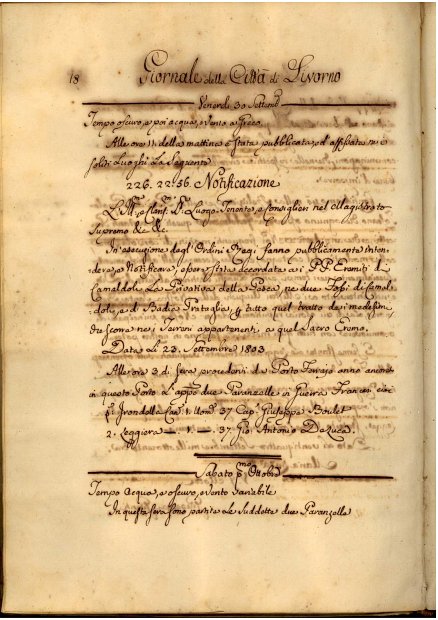 18 Giornale della Città di Livorno
Venerdì 30 Settemb
Tempo oscuro, e poi acqua, e Vento a Greco
Alle ore 11 della mattina è stata pubblicata, ed affissata ne i
soliti Luoghi La Seguente
226. 22:56. Notificazione
L' Luogo Tenente, e Consiglieri nel Magistrato
Supremo &c &c
In esecuzione degl'Ordini Regi fanno pubblicamente inten
dere, e Notificare, essere stata accordata a i P.P. Eremiti di
Camaldoli La Privativa della Pesca ne due Fossi di Camal
doli, e di Badia Prataglia, e tutto quel tratto de i medesimi,
che scorre ne i Terreni appartenenti a quel Sacro Eremo.
Data Li 23. Settembre 1803
Alle ore 3 d. Sera provenienti da Porto Ferrajo anno ancorato
in questo Porto L' due Paranzelle in Guerra Francesi cioè
p.ª Irondella Can. 1. Uom. 37 Cap. Giuseppe Boulet
2. Leggiera — 1. — 37 Gio. Antonio DeLuca.
Sabato p.mo Ottobre
Tempo Acqua, e oscuro, e Vento Variabile
In questa sera sono partite Le Suddette due Paranzelle